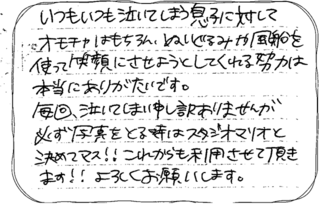 いつもいつも泣いてしまう息子に対して
オモチャはもちろん、ぬいぐるみや風船を
使って笑顔にさせようとしてくれる努力は
本当にありがたいです。
毎回、泣いてしまい申し訳ありませんが
必ず写真をとる時はスタジオマリオと
決めてマス!! これからも利用させて頂き
ます!! よろしくお願いします。